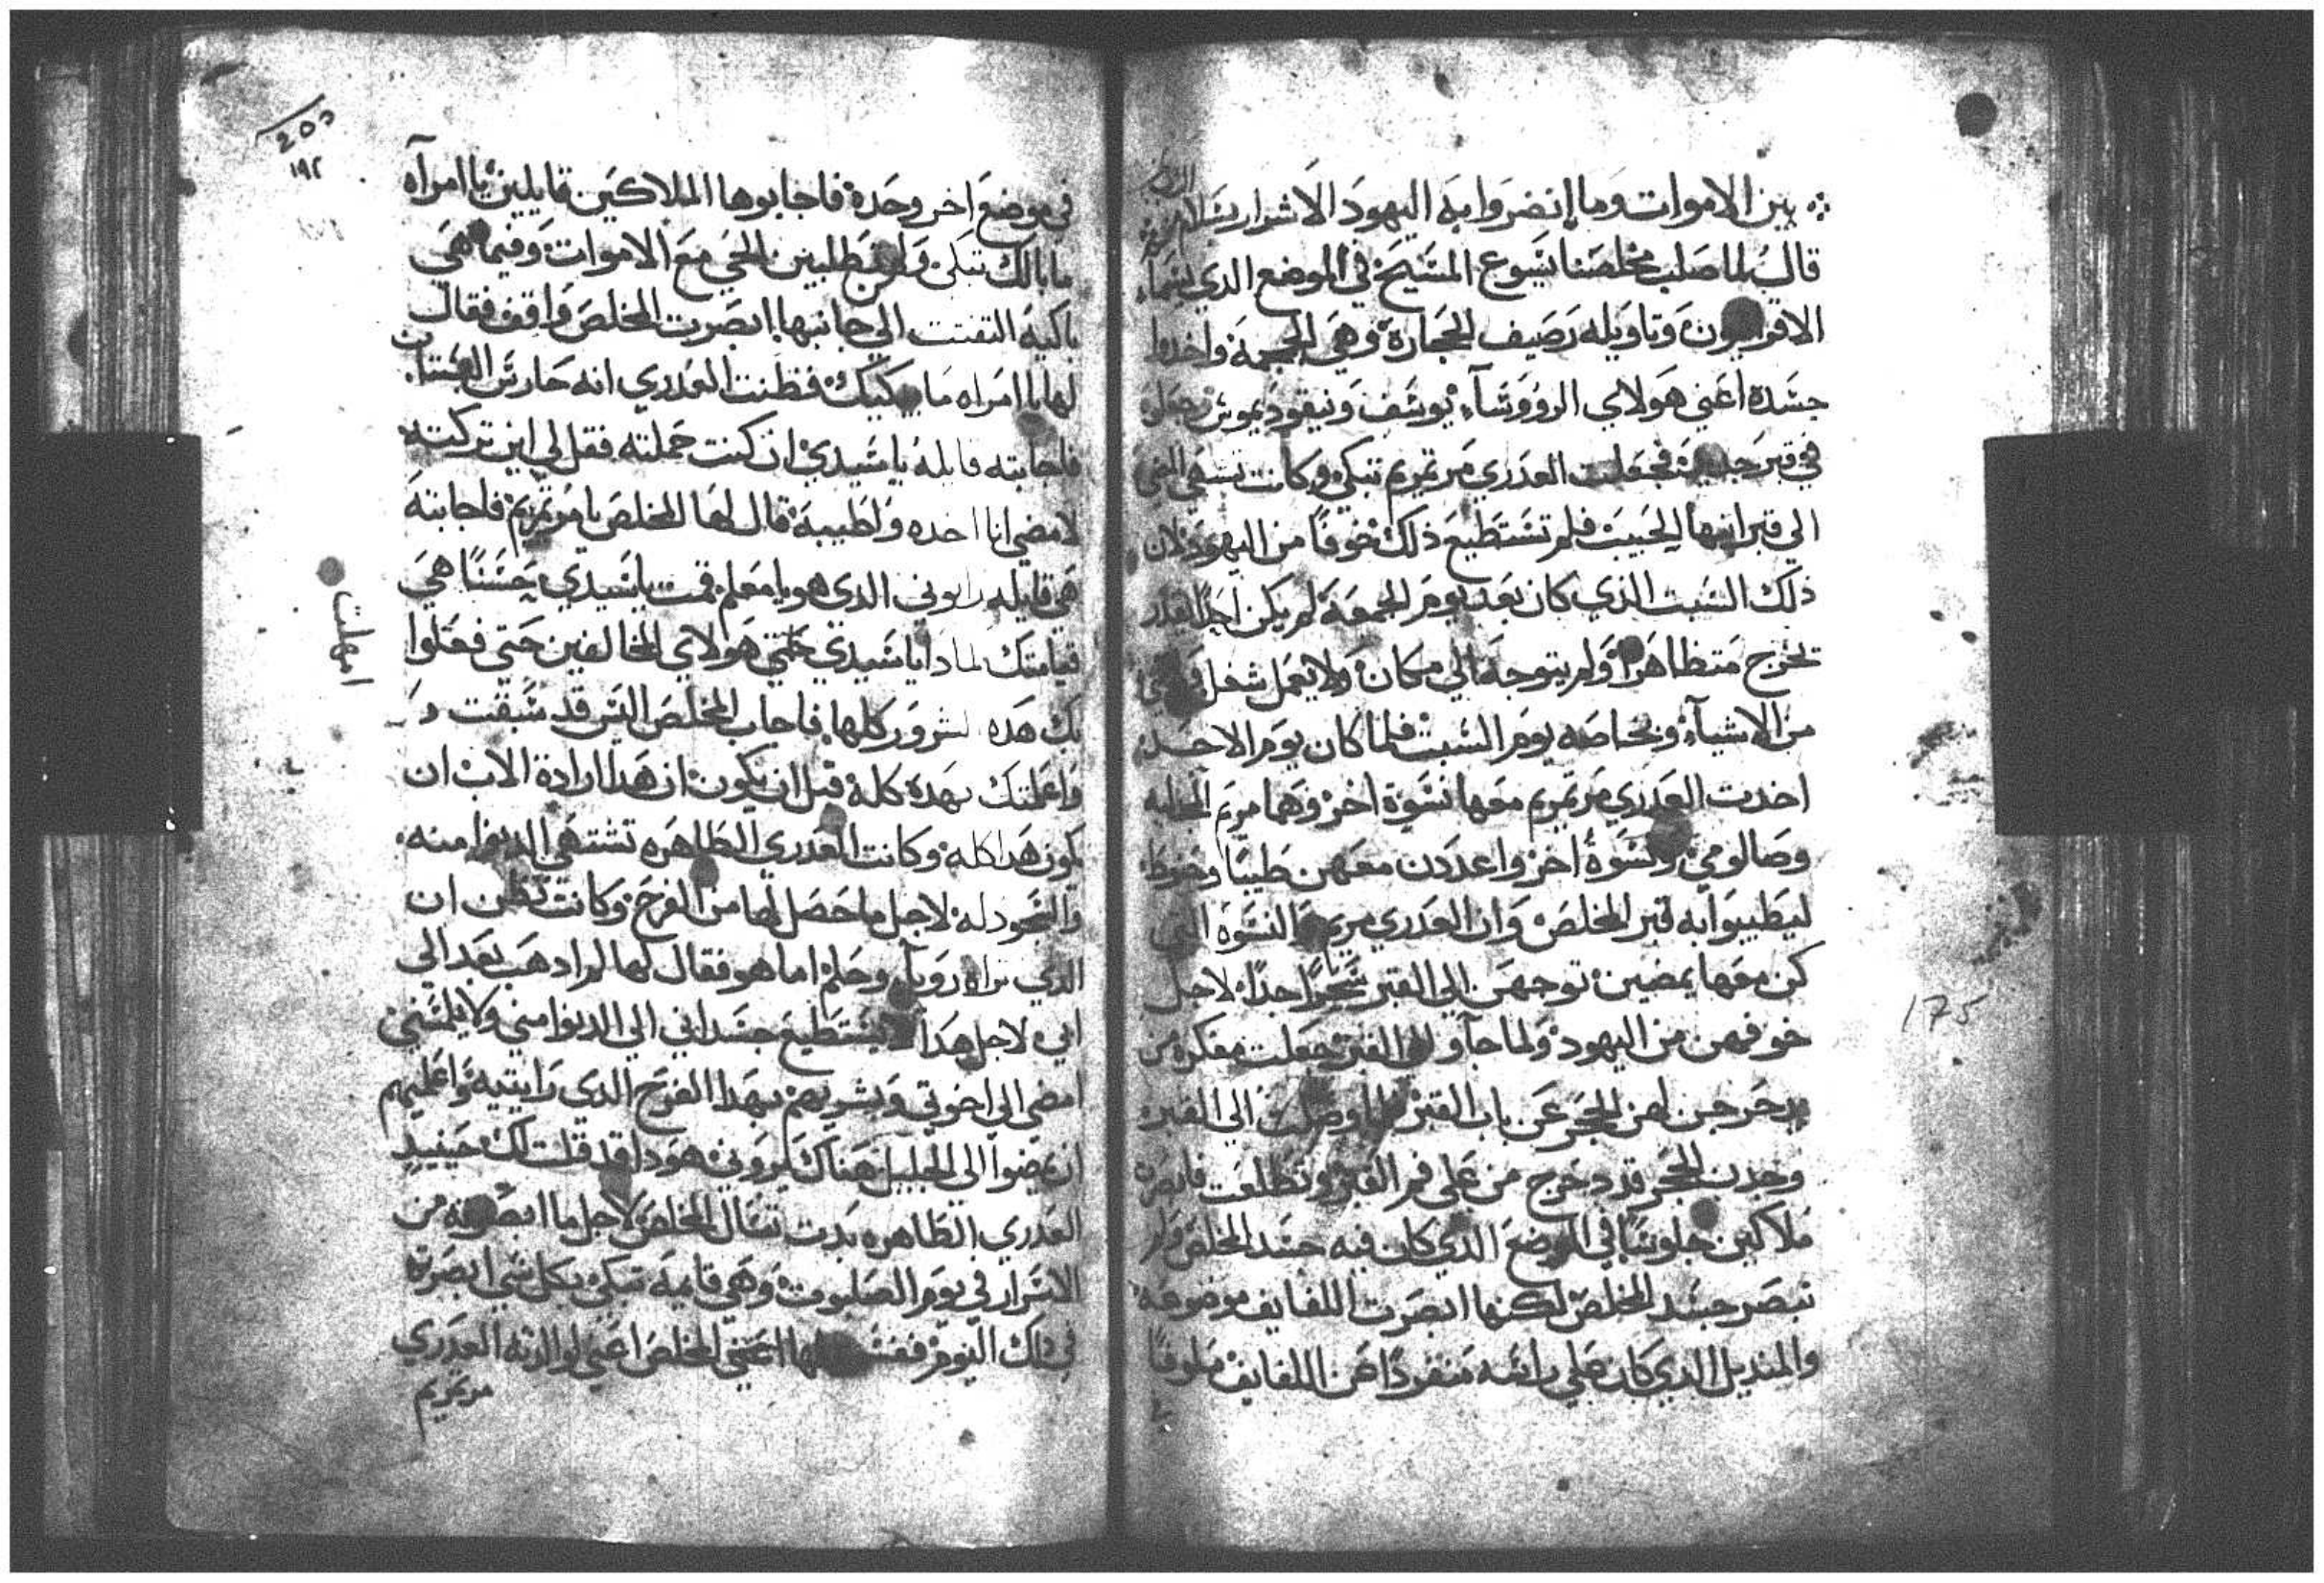 بين الاموات وما انضروا به اليهود الاشرار بسلام
قال لما صلب مخلصنا يسوع المسيح في الموضع الدي يسما
وتاويله رصيف الحجارة وهي الجمجمة واخدوا
جسده اعني هولاي الروؤسآء يوسف ونيقوديموس وجعلوه
في قبر جديد فجعلت العدري مرتمريم تبكي وكانت تشتهي المضي
الي قبر ابنها الحبيب فلم تستطيع ذلك خوفا من اليهود لان
ذلك السبت الذي كان بعد يوم الجمعة لم يكن احدا يقدر
يخرج متظاهرا ولم يتوجه الي مكان ولا يعمل شغل
من الاشيآء وبخاصه يوم السبت فلما كان يوم الاحد
اخدت العدري مرتمريم معها نسوة اخر وهما مريم المجدليه
وصالومي ونسوة اخر واعددن معهن طيبا وحنوطا
ليطيبوا به قبر المخلص وان العدري مريم والنسوه التي
كن معها يمضين توجهن الي القبر سحرا جدا لاجل
خوفهن من اليهود ولما جآو الي القبر جعلت مفكره من
يدحرجن لهن الحجر عن باب القبر فلما وصلت الي القبر
وجدت الحجر قد دحرج من علي فم القبر وتطلعت فابصرة
ملاكين جلوسا في الموضع الدي كان فيه جسد المخلص ولم
تبصر جسد المخلص لكنها ابصرت اللفايف موضوعه
والمنديل الدي كان علي راسه منفردا عن اللفايف ملفوفا
175
255
١٩٢
في موضع اخر وحده فاجابوها الملاكين قايلين يا امرآه
ما بالك تبكي ولمن تطلبين الحي مع الاموات وفيما هي
باكيه التفتت الي جانبها ابصرت المخلص واقف فقال
لها يا امراه ما يبكيك فظنت العدري انه حارس البستان
فاجابته قايله يا سيدي ان كنت حملته فقل لي اين تركته
لامضي انا اخده واطيبه قال لها المخلص يا مرتمريم فاجابته
هي قايله رابوني الدي هو يا معلم قمت يا سيدي حسنا هي
قيامتك لمادا يا سيدي خليتني هولاي المخالفين حتي فعلوا
امهلت
بك هده الشرور كلها فاجاب المخلص اليس قد سبقت
واعلمتك بهده كله قبل ان يكون ان هدا ارادة الاب ان
يكون هدا كله وكانت العدري الطاهره تشتهي الدنوا منه
والسجود له لاجل ما حصل لها من الفرح وكانت تظن ان
الدي تراه رويآ وحلم اما هو فقال لها لم ادهب بعد الي
ابي لاجل هدا لا يستطيع جسداني الي الدنوا مني ولا يلمسني
امضي الي اخوتي وبشريهم بهدا الفرح الدي رايتيه واعليهم
ان يمضوا الي الجليل هناك يروني هودا قد قلت لك حينيد
العدري الطاهره بدت تسال المخلص لاجل ما ابصرته من
الاسرار في يوم الصلبوت وهي قايمه تبكي بكل شي ابصرته
في دلك اليوم ففسر لها اعني المخلص اعني لوالدته العدري
مرتمريم